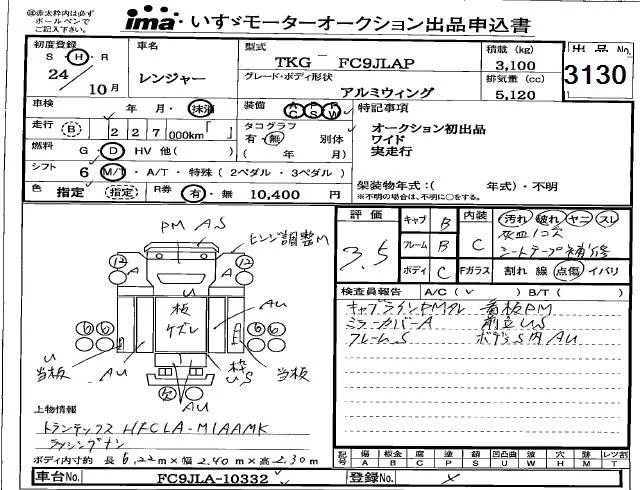 ※赤太枠内は必ず
ボールペンで
ご記入下さい。
ima いすゞモーターオークション出品申込書
初度登録
S・H・R
24 10月
車名
レンジャー
型式
TKG FC9JLAP
グレード・ボディ形状
アルミウィング
積載 (kg)
3,100
排気量 (cc)
5,120
出品No.
3130
車検 年 月・抹消
装備 AC PS PW
走行 B 227 000km
タコグラフ
有・無 別体
( 年 月)
燃料 G・D HV 他( )
シフト 6 M/T・A/T・特殊 (2ペダル・3ペダル)
色 指定 (指定) R券 有・無 10,400 円
特記事項
オークション初出品
ワイド
実走行
架装物年式:( 年式)・不明
※不明の場合は、不明に○をする。
評価
3.5
キャブ B
フレーム B
ボディ C
内装 C
汚れ 破れ ヤニ スレ
灰皿1コ欠
シートテープ補修
Fガラス 割れ 線 点傷 イバリ
検査員報告 A/C( ✓ ) B/T( )
キャブラインPMクル 看板PM
ミラーカバーA 前立US
フレームS ボデーS内AU
PM A.S
ヒンジ調整M
12 A A 12
板
ケズレ
AU
6 6 6 6
U
当板
AU
枠
US
当板
AU
上物情報
トランテックス HFCLA-M1AAMK
ラッシングナシ
ボディ内寸約 長 6.22m×幅 2.40m×高 2.30m
記号 傷A 板金B 腐C 塗P 錆S 凹凸曲U 波W 穴H 跡M レツ割T
車台No. FC9JLA-10332
登録No.